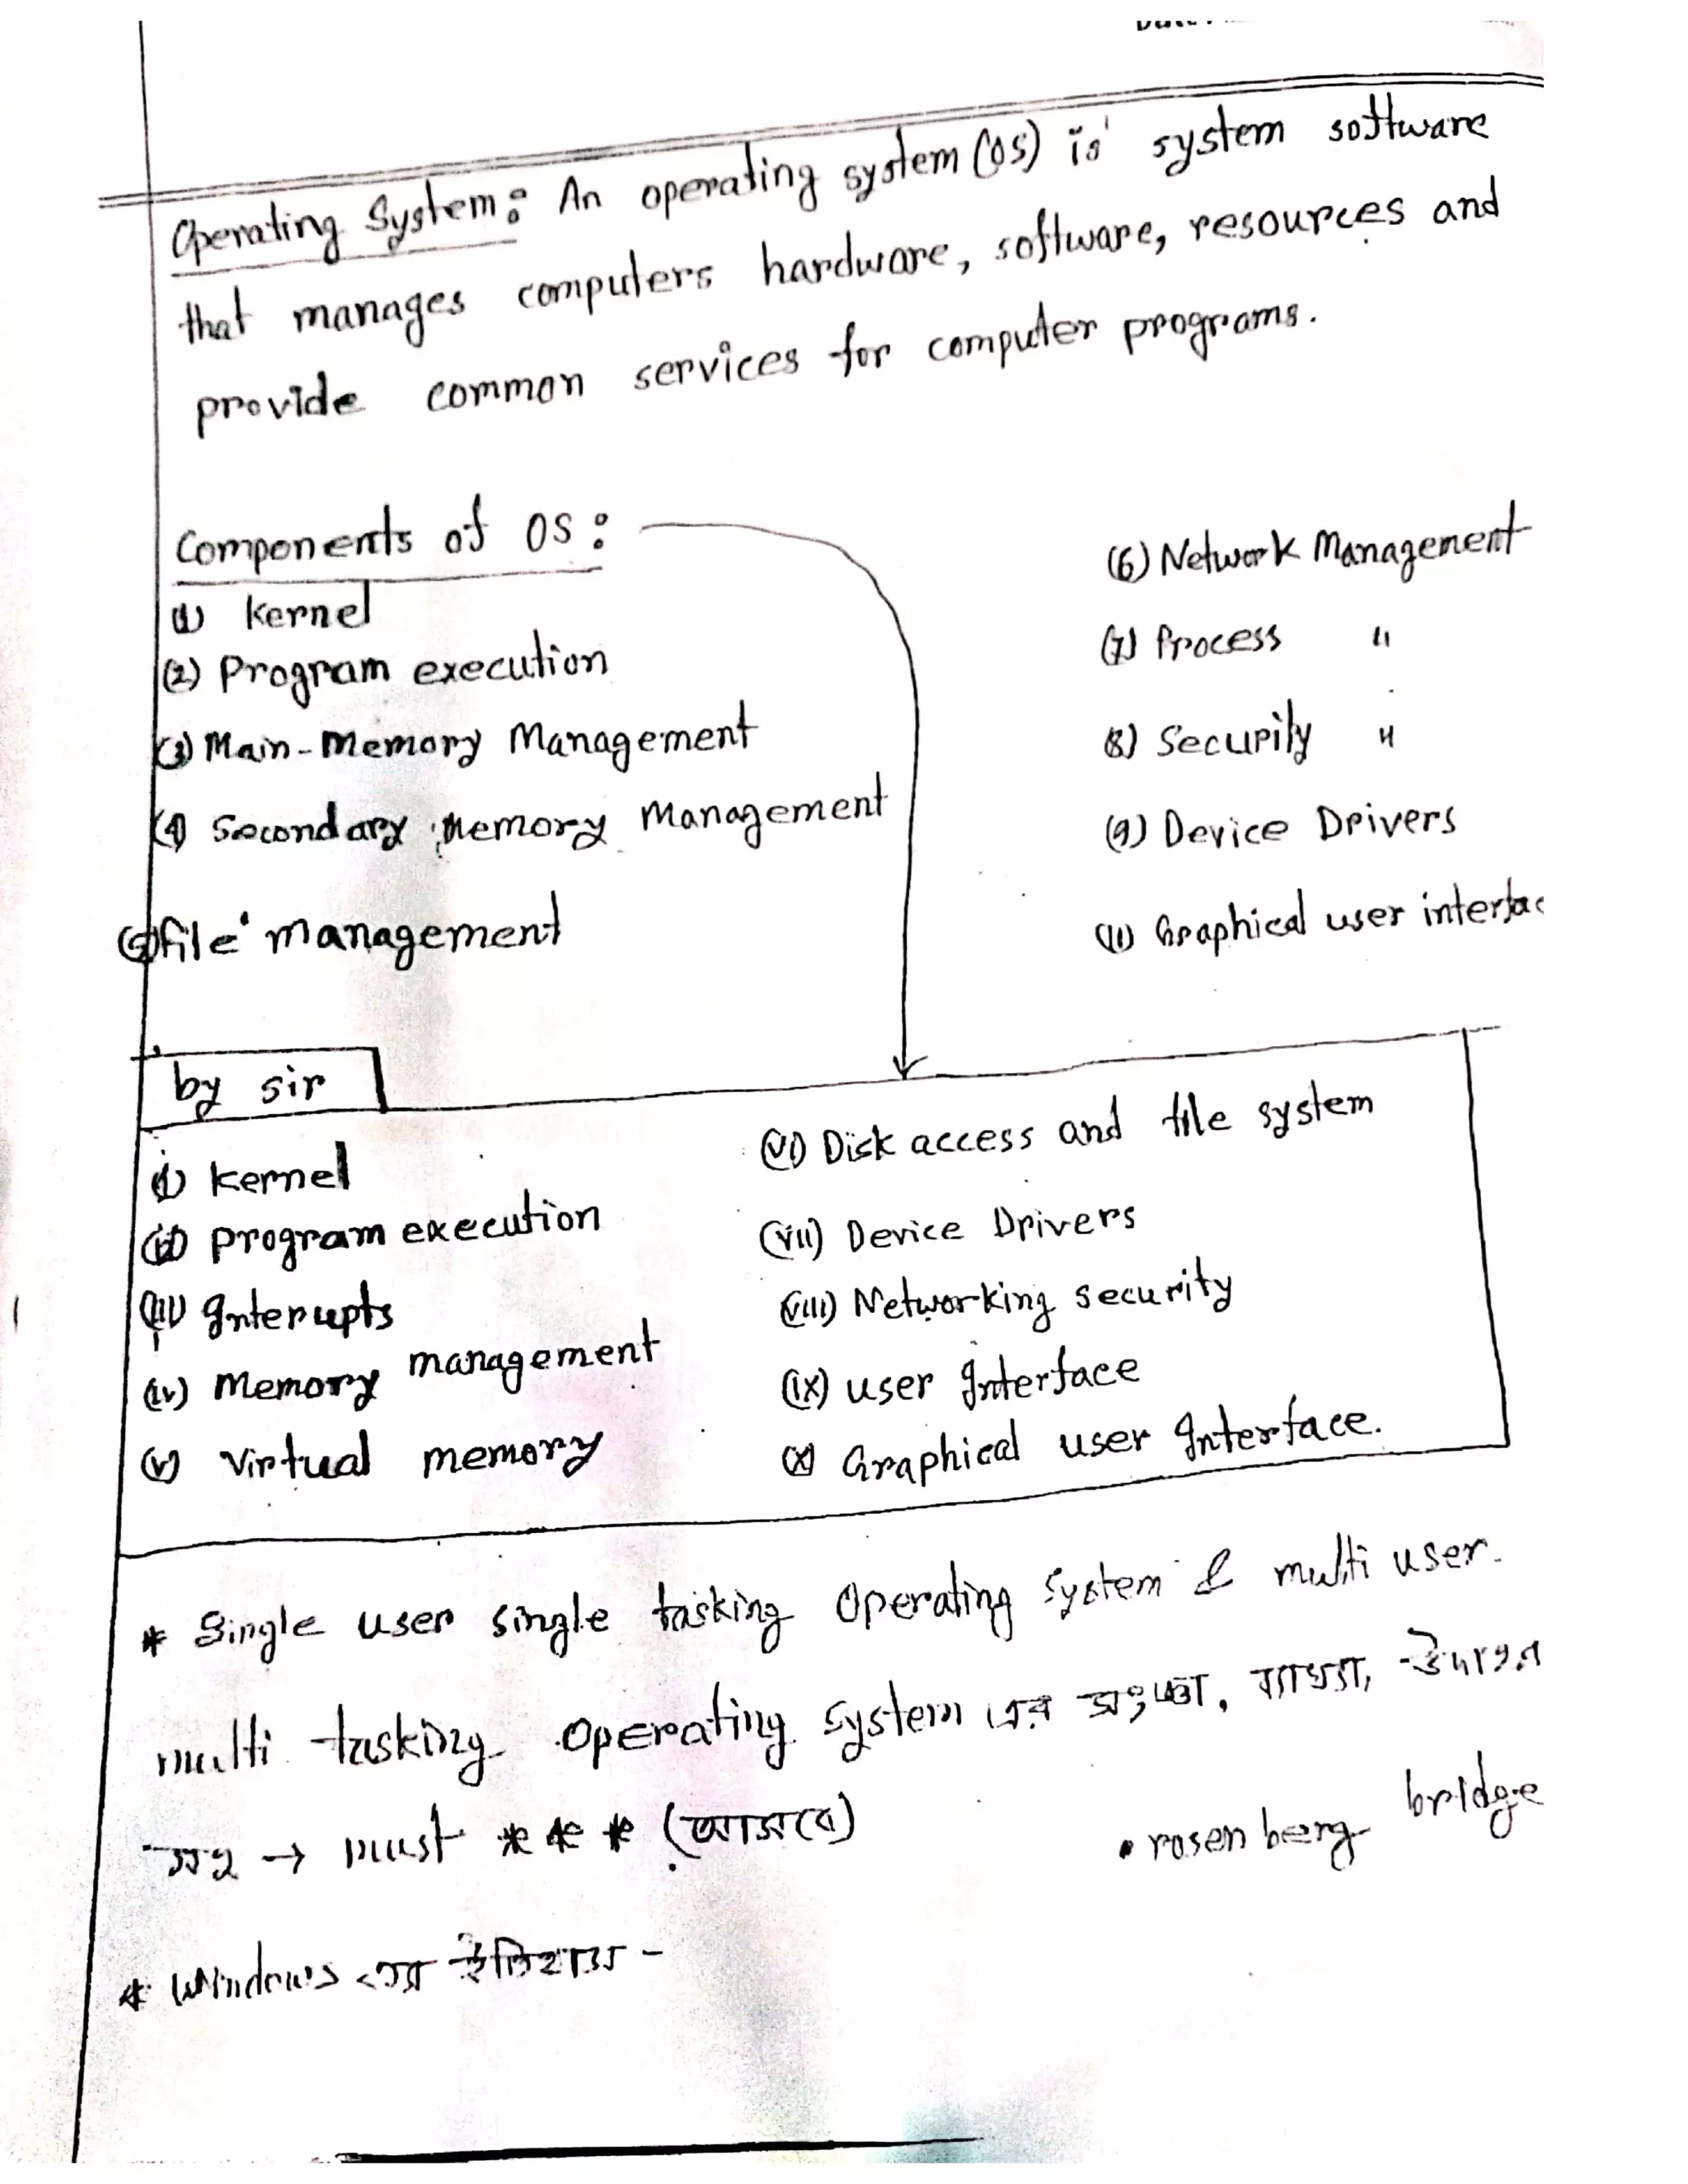 Operating System: An operating system (OS) is system software
that manages computers hardware, software, resources and
provide common services for computer programs.
Components of OS:
(1) kernel
(2) Program execution
(3) Main-Memory Management
(4) Secondary Memory Management
(5) file management
(6) Network Management
(7) Process "
(8) Security "
(9) Device Drivers
(10) Graphical user interfac
by sir
(i) kernel
(ii) program execution
(iii) Interupts
(iv) Memory management
(v) Virtual memory
(vi) Disk access and file system
(vii) Device Drivers
(viii) Networking security
(ix) user Interface
(x) Graphical user Interface.
* Single user single tasking Operating System & multi user
multi tasking operating system এর সংজ্ঞা, ব্যাখ্যা, উদাহরণ
সহ → must * * * (আসবে)
• rosen berg bridge
* Windows এর ইতিহাস -